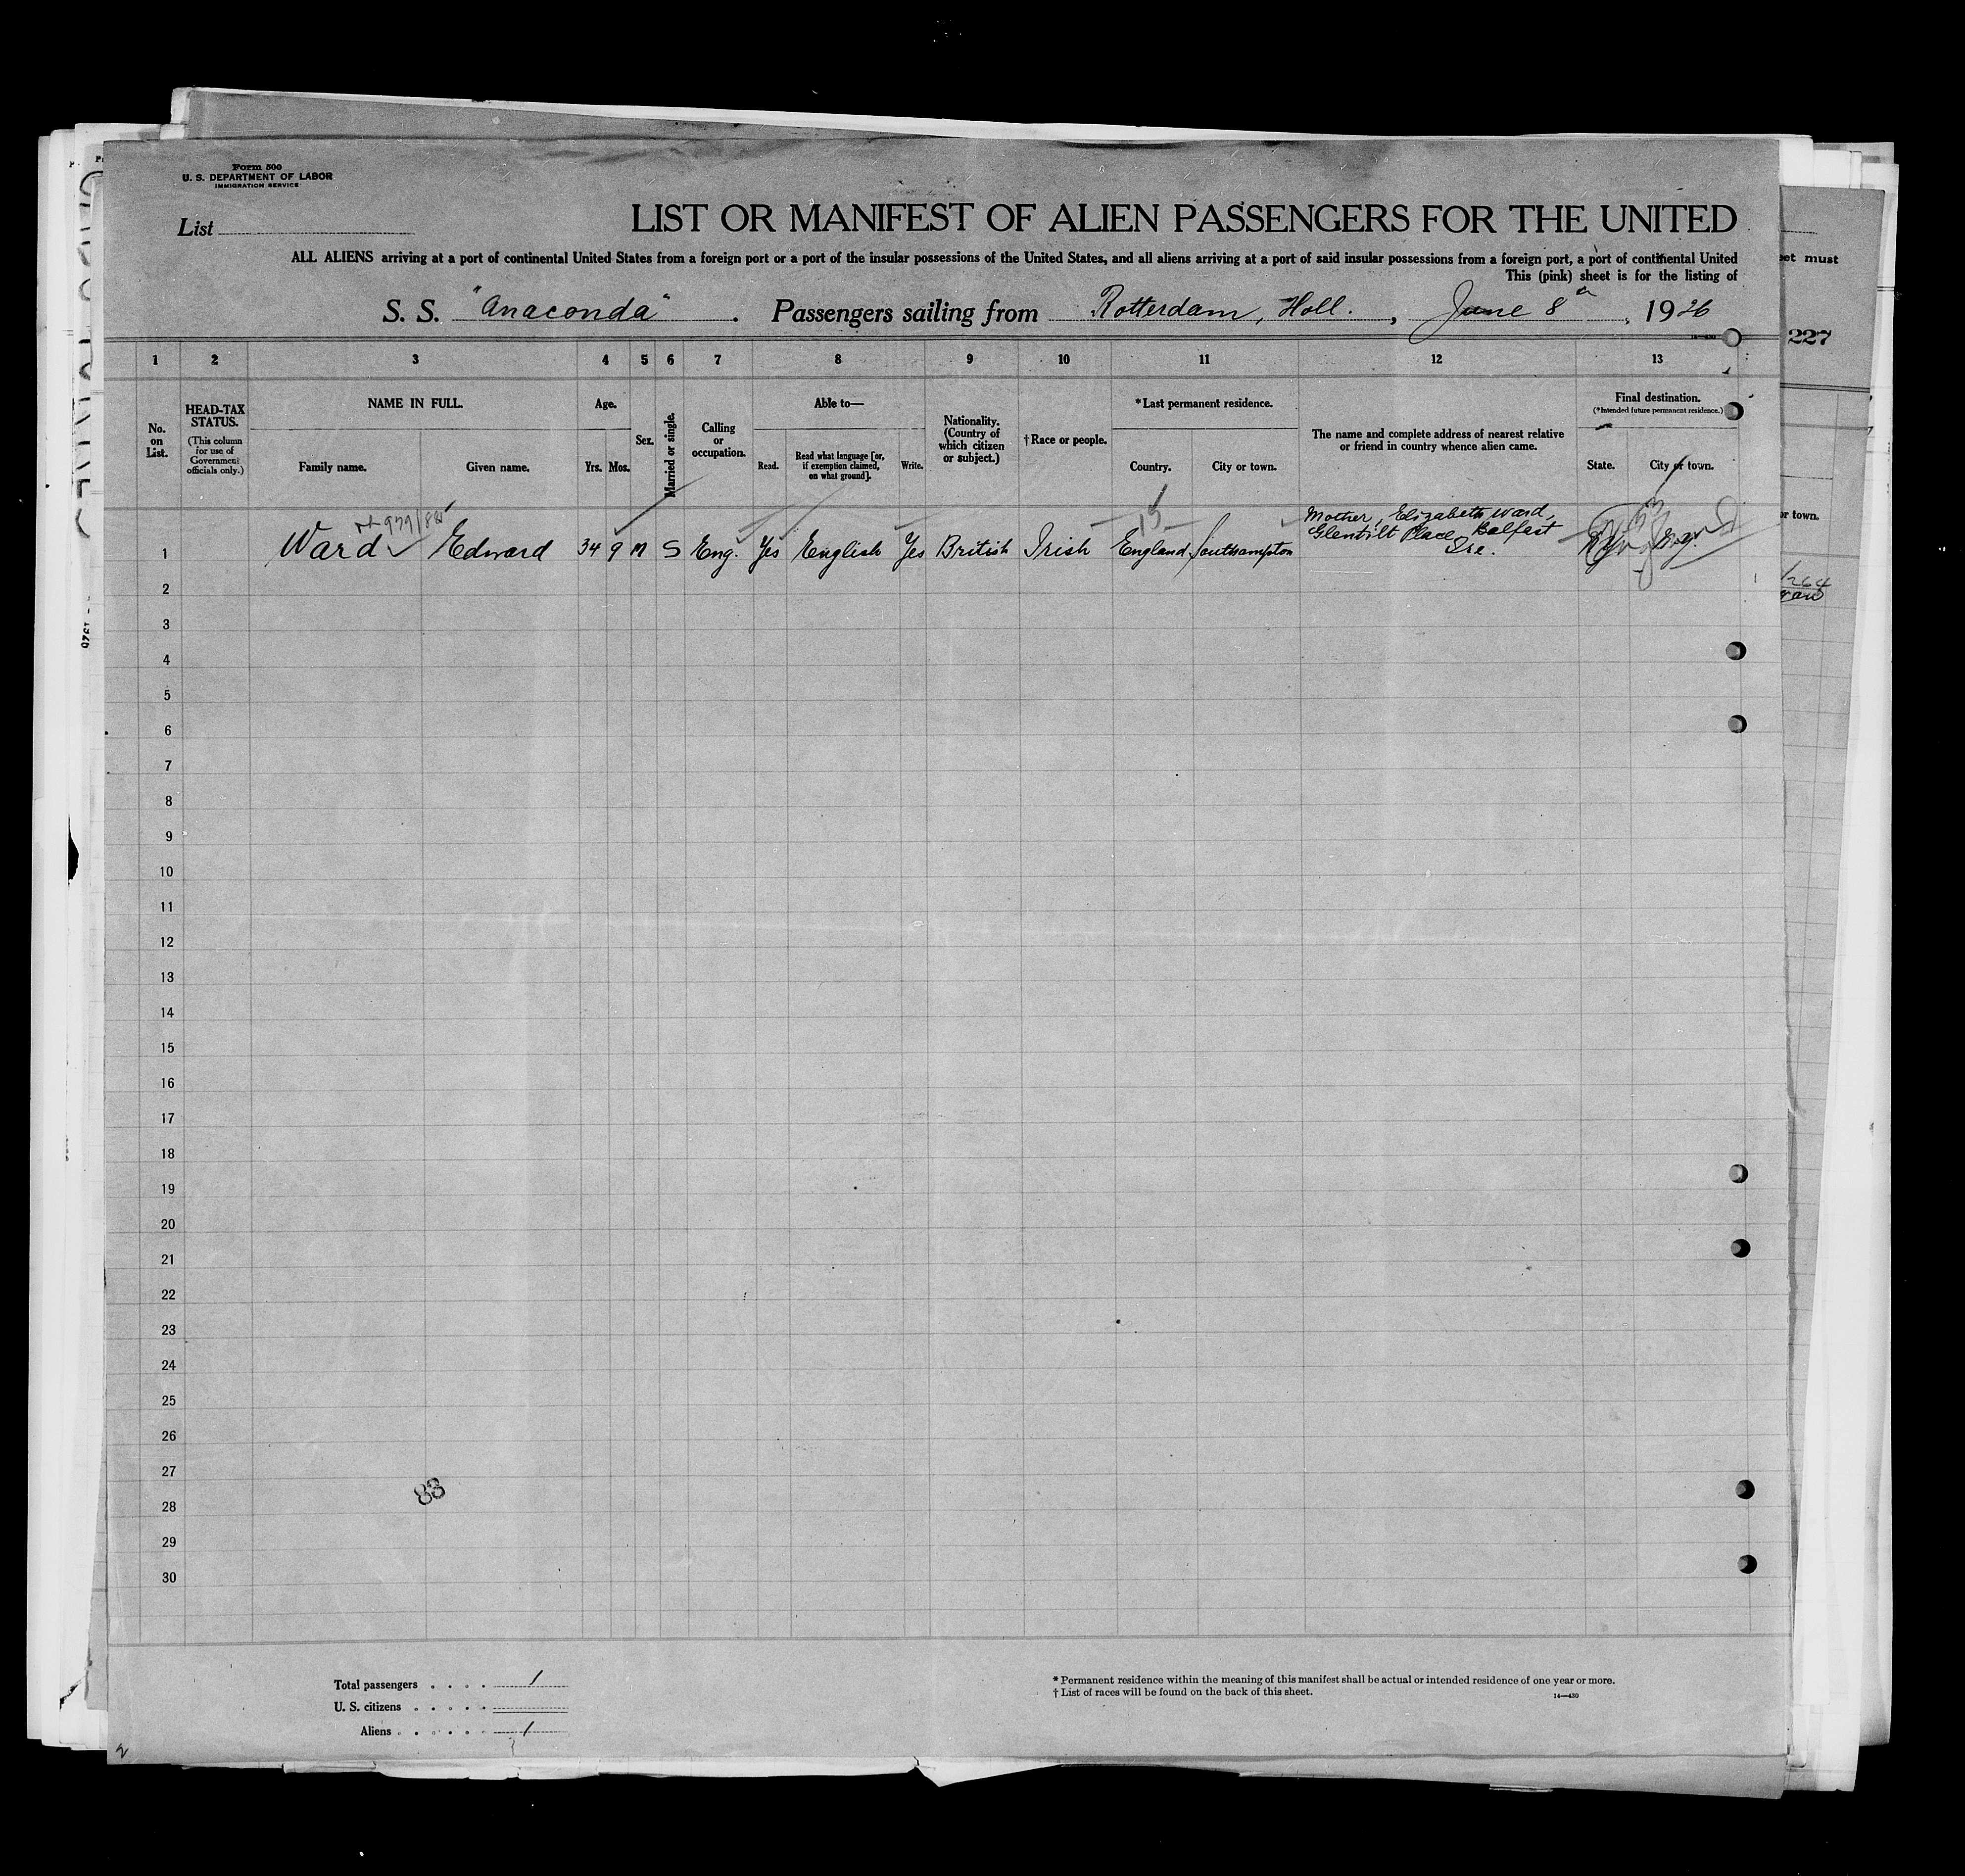 Form 500
U. S. DEPARTMENT OF LABOR
IMMIGRATION SERVICE
List
LIST OR MANIFEST OF ALIEN PASSENGERS FOR THE UNITED
ALL ALIENS arriving at a port of continental United States from a foreign port or a port of the insular possessions of the United States, and all aliens arriving at a port of said insular possessions from a foreign port, a port of continental United
This (pink) sheet is for the listing of
S. S. "Anaconda". Passengers sailing from Rotterdam, Holl., June 8th, 1926
14—430
227
et must
1 2 3 4 5 6 7 8 9 10 11 12 13
No. on List.
HEAD-TAX STATUS.
(This column for use of Government officials only.)
NAME IN FULL.
Family name. Given name.
Age.
Yrs. Mos.
Sex.
Married or single.
Calling or occupation.
Able to—
Read. Read what language [or, if exemption claimed, on what ground]. Write.
Nationality. (Country of which citizen or subject.)
†Race or people.
*Last permanent residence.
Country. City or town.
The name and complete address of nearest relative or friend in country whence alien came.
Final destination.
(*Intended future permanent residence.)
State. City or town.
or town.
15
Mother, Elizabeth Ward,
Glentilt Place, Belfast
Ire.
1 Ward Edward 34 9 M S Eng. Yes English Yes British Irish England Southampton
2
3
4
5
6
7
8
9
10
11
12
13
14
15
16
17
18
19
20
21
22
23
24
25
26
27
28
29
30
83
Total passengers 1
U. S. citizens
Aliens 1
* Permanent residence within the meaning of this manifest shall be actual or intended residence of one year or more.
† List of races will be found on the back of this sheet.
14—430
2